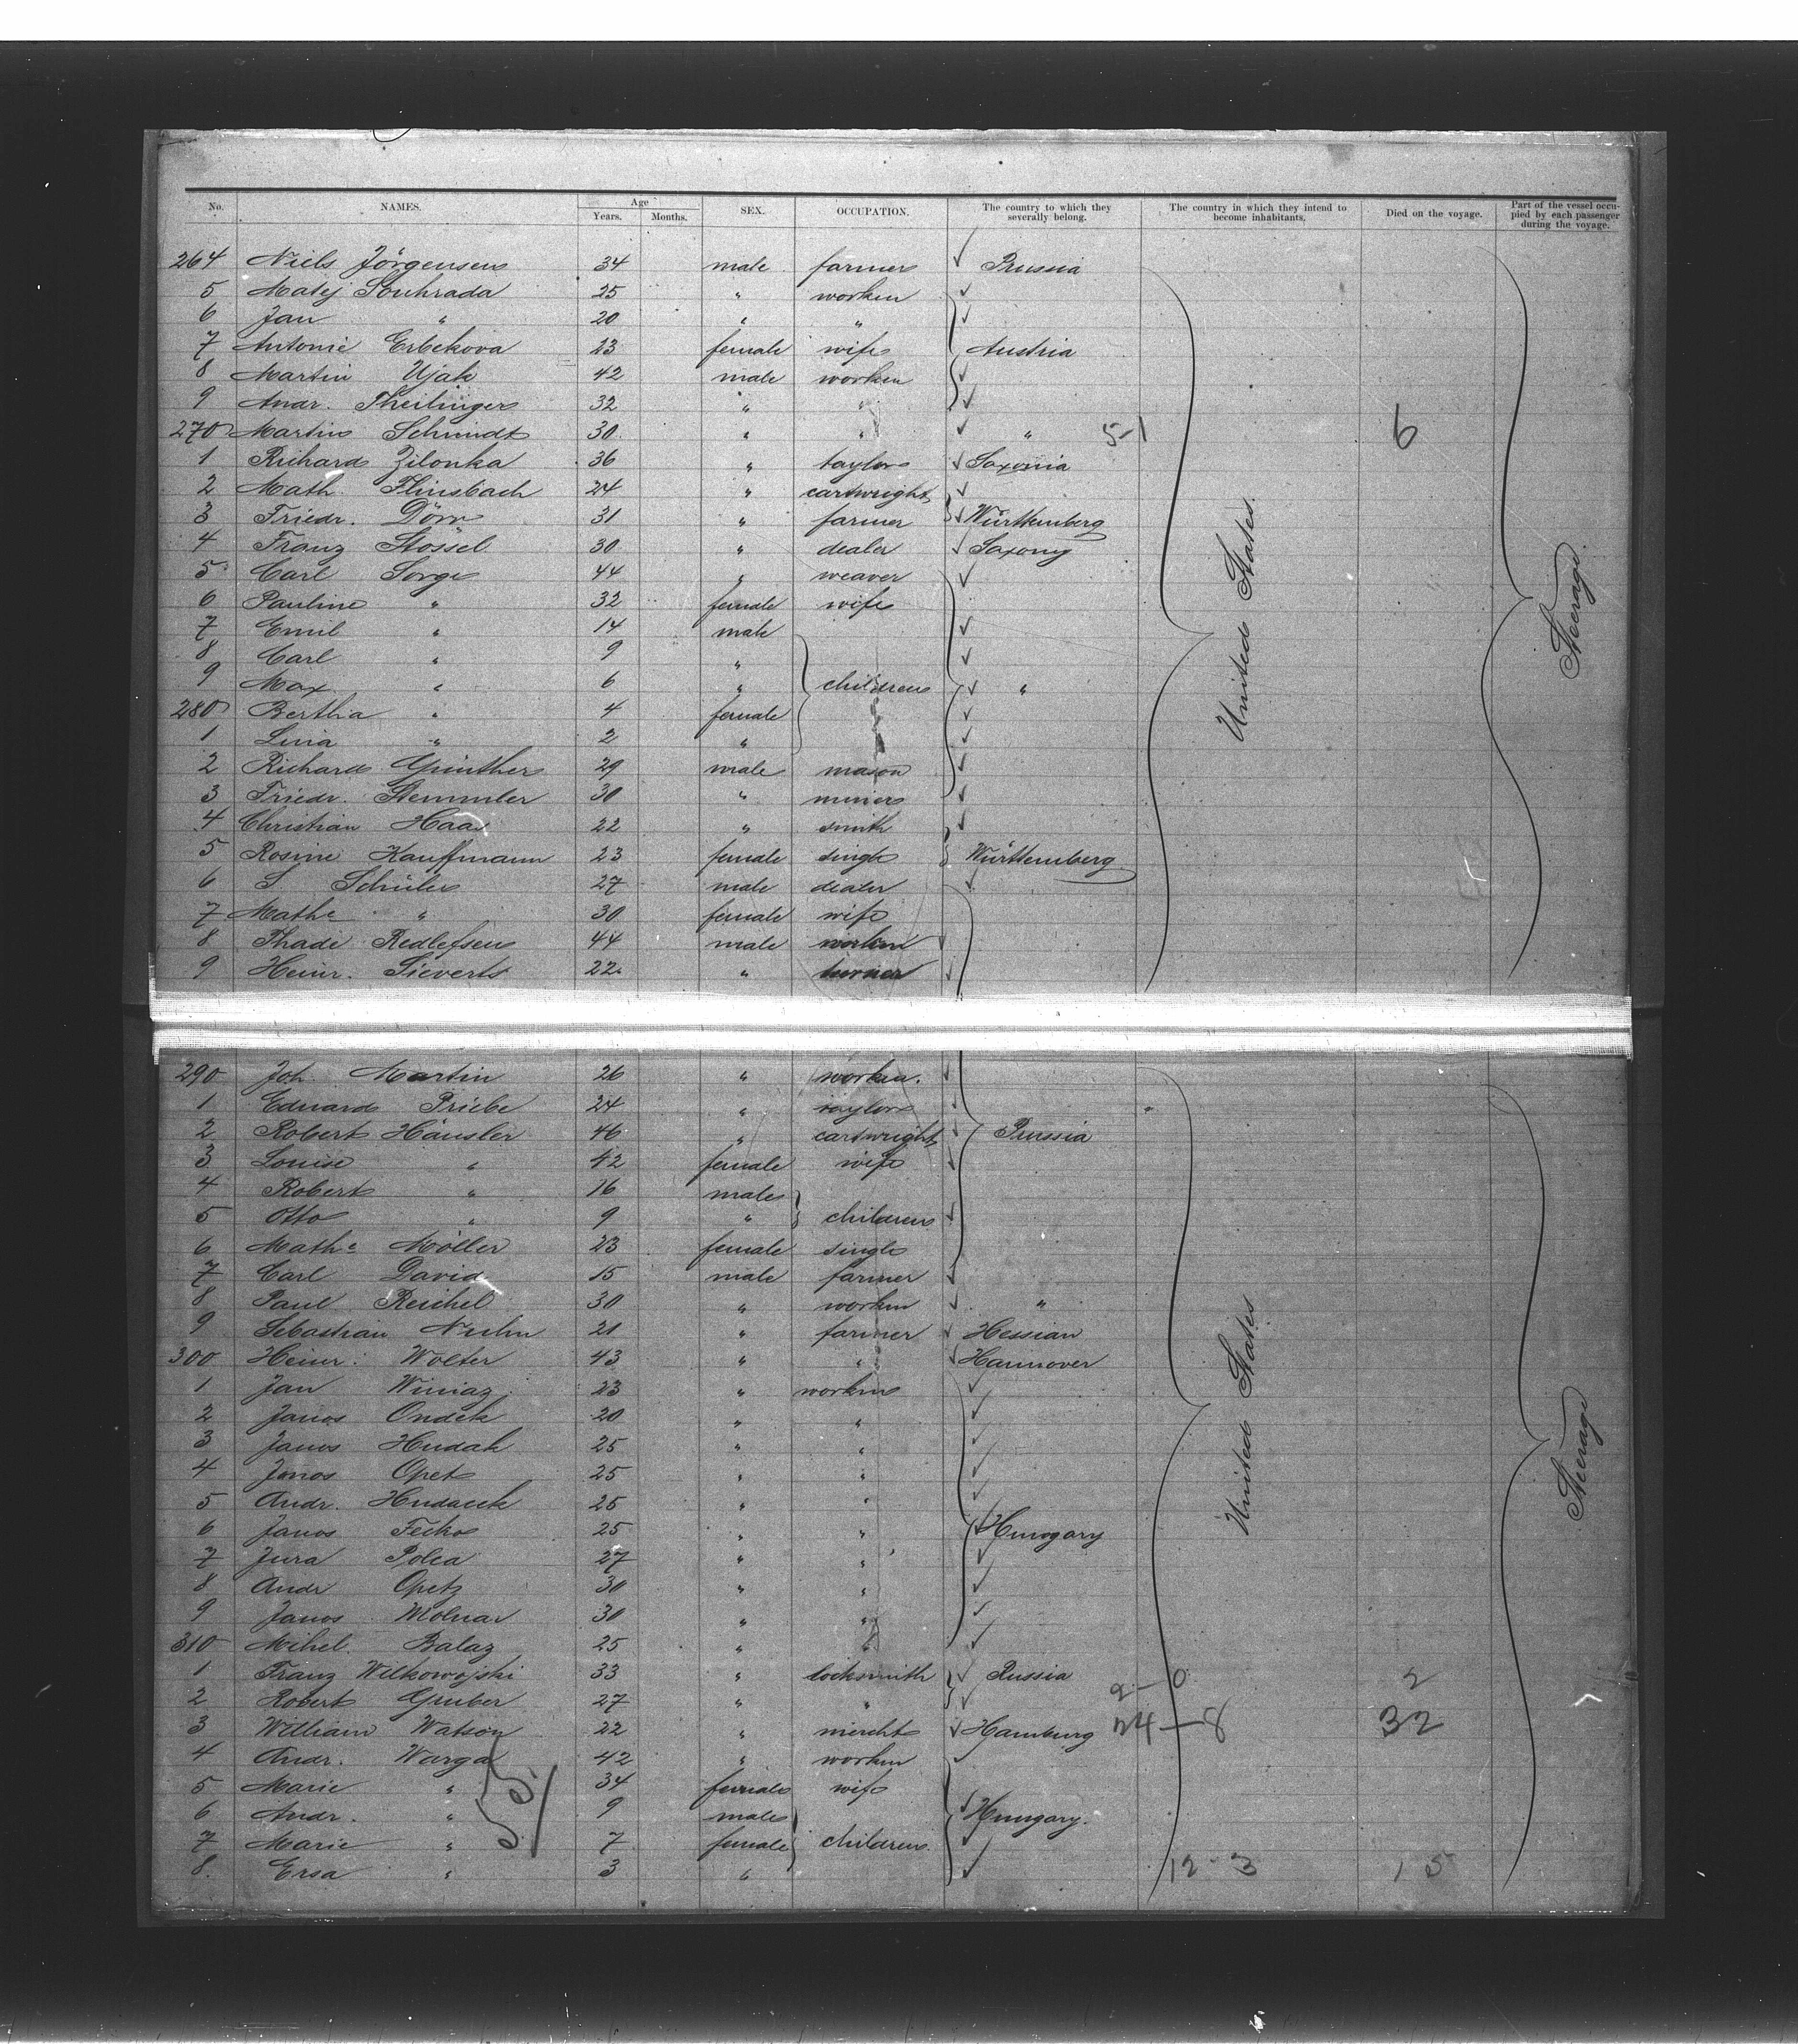 No. NAMES. Age Years. Months. SEX. OCCUPATION. The country to which they severally belong. The country in which they intend to become inhabitants. Died on the voyage. Part of the vessel occupied by each passenger during the voyage.
264 Niels Jörgensen 34 male farmer Prussia
5 Matej Souhrada 25 " worken
6 Jan " 20 " "
7 Antonie Erbekova 23 female wife Austria
8 Martin Ujak 42 male worken
9 Andr. Theilinger 32 " "
270 Martin Schmidt 30 " " " 5-1 6
1 Richard Zilonka 36 " taylor Saxonia
2 Math. Flinsbach 24 " cartwright
3 Friedr. Dörr 31 " farmer Württemberg
4 Franz Stössel 30 " dealer Saxony
5 Carl Sorge 44 " weaver
6 Pauline " 32 female wife
7 Emil " 14 male
8 Carl " 9 "
9 Max " 6 " children "
280 Bertha " 4 female
1 Lina " 2 "
2 Richard Günther 29 male mason
3 Friedr. Stemmler 30 " miner
4 Christian Haas 22 " smith
5 Rosine Kauffmann 23 female single Württemberg
6 S. Schüler 27 male dealer
7 Mathe " 30 female wife
8 Thade Redlefsen 44 male worken
9 Heinr. Sieverts 22 " turner
United States
Steerage
290 Joh. Martin 26 " worken.
1 Eduard Priebe 24 " taylor
2 Robert Häusler 46 " cartwright Prussia
3 Louise " 42 female wife
4 Robert " 16 male
5 Otto " 9 " children
6 Mathe Möller 23 female single
7 Carl David 15 male farmer
8 Paul Reichel 30 " worken "
9 Sebastian Nuhn 21 " farmer Hessian
300 Heinr. Wolter 43 " " Hannover
1 Jan Winiaz 23 " worken
2 Janos Ondek 20 " "
3 Janos Hudak 25 " "
4 Janos Opet 25 " "
5 Andr. Hudacek 25 " "
6 Janos Fecko 25 " " Hungary
7 Jura Polca 27 " "
8 Andr Opetz 30 " "
9 Janos Molnar 30 " "
310 Mihel Balaz 25 " "
1 Franz Wilkowojski 33 " locksmith Russia 2-0 2
2 Robert Gruber 27 " "
3 William Watson 22 " mercht Hamburg 24-8 32
4 Andr. Warga 42 " worken
5 Marie " 34 female wife
6 Andr. " 9 male Hungary.
7 Marie " 7 female children
8. Ersa " 3 " 12-3 15
United States
Steerage